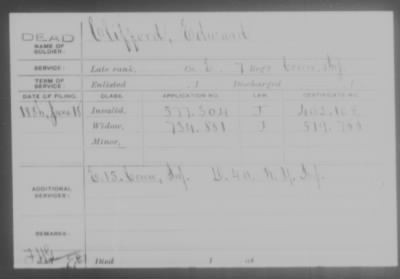 DEAD
NAME OF SOLDIER: Clifford, Edward
SERVICE: Late rank, Co. E, 7 Reg't Conn. Inf.
TERM OF SERVICE: Enlisted 1 Discharged 1
DATE OF FILING. CLASS. APPLICATION NO. LAW. CERTIFICATE NO.
1886, June 15 Invalid, 577.504 J
Widow, 734.881 J
Minor,
ADDITIONAL SERVICES: E. 15. Conn. Inf. D. 40. N.Y. Inf.
REMARKS:
Died 1 at